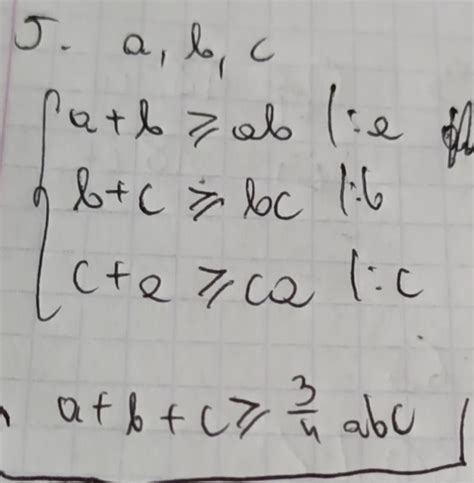 5. a, b, c
a + b ⩾ ab | : a
b + c ⩾ bc | : b
c + a ⩾ ca | : c
a + b + c ⩾ 3/4 abc